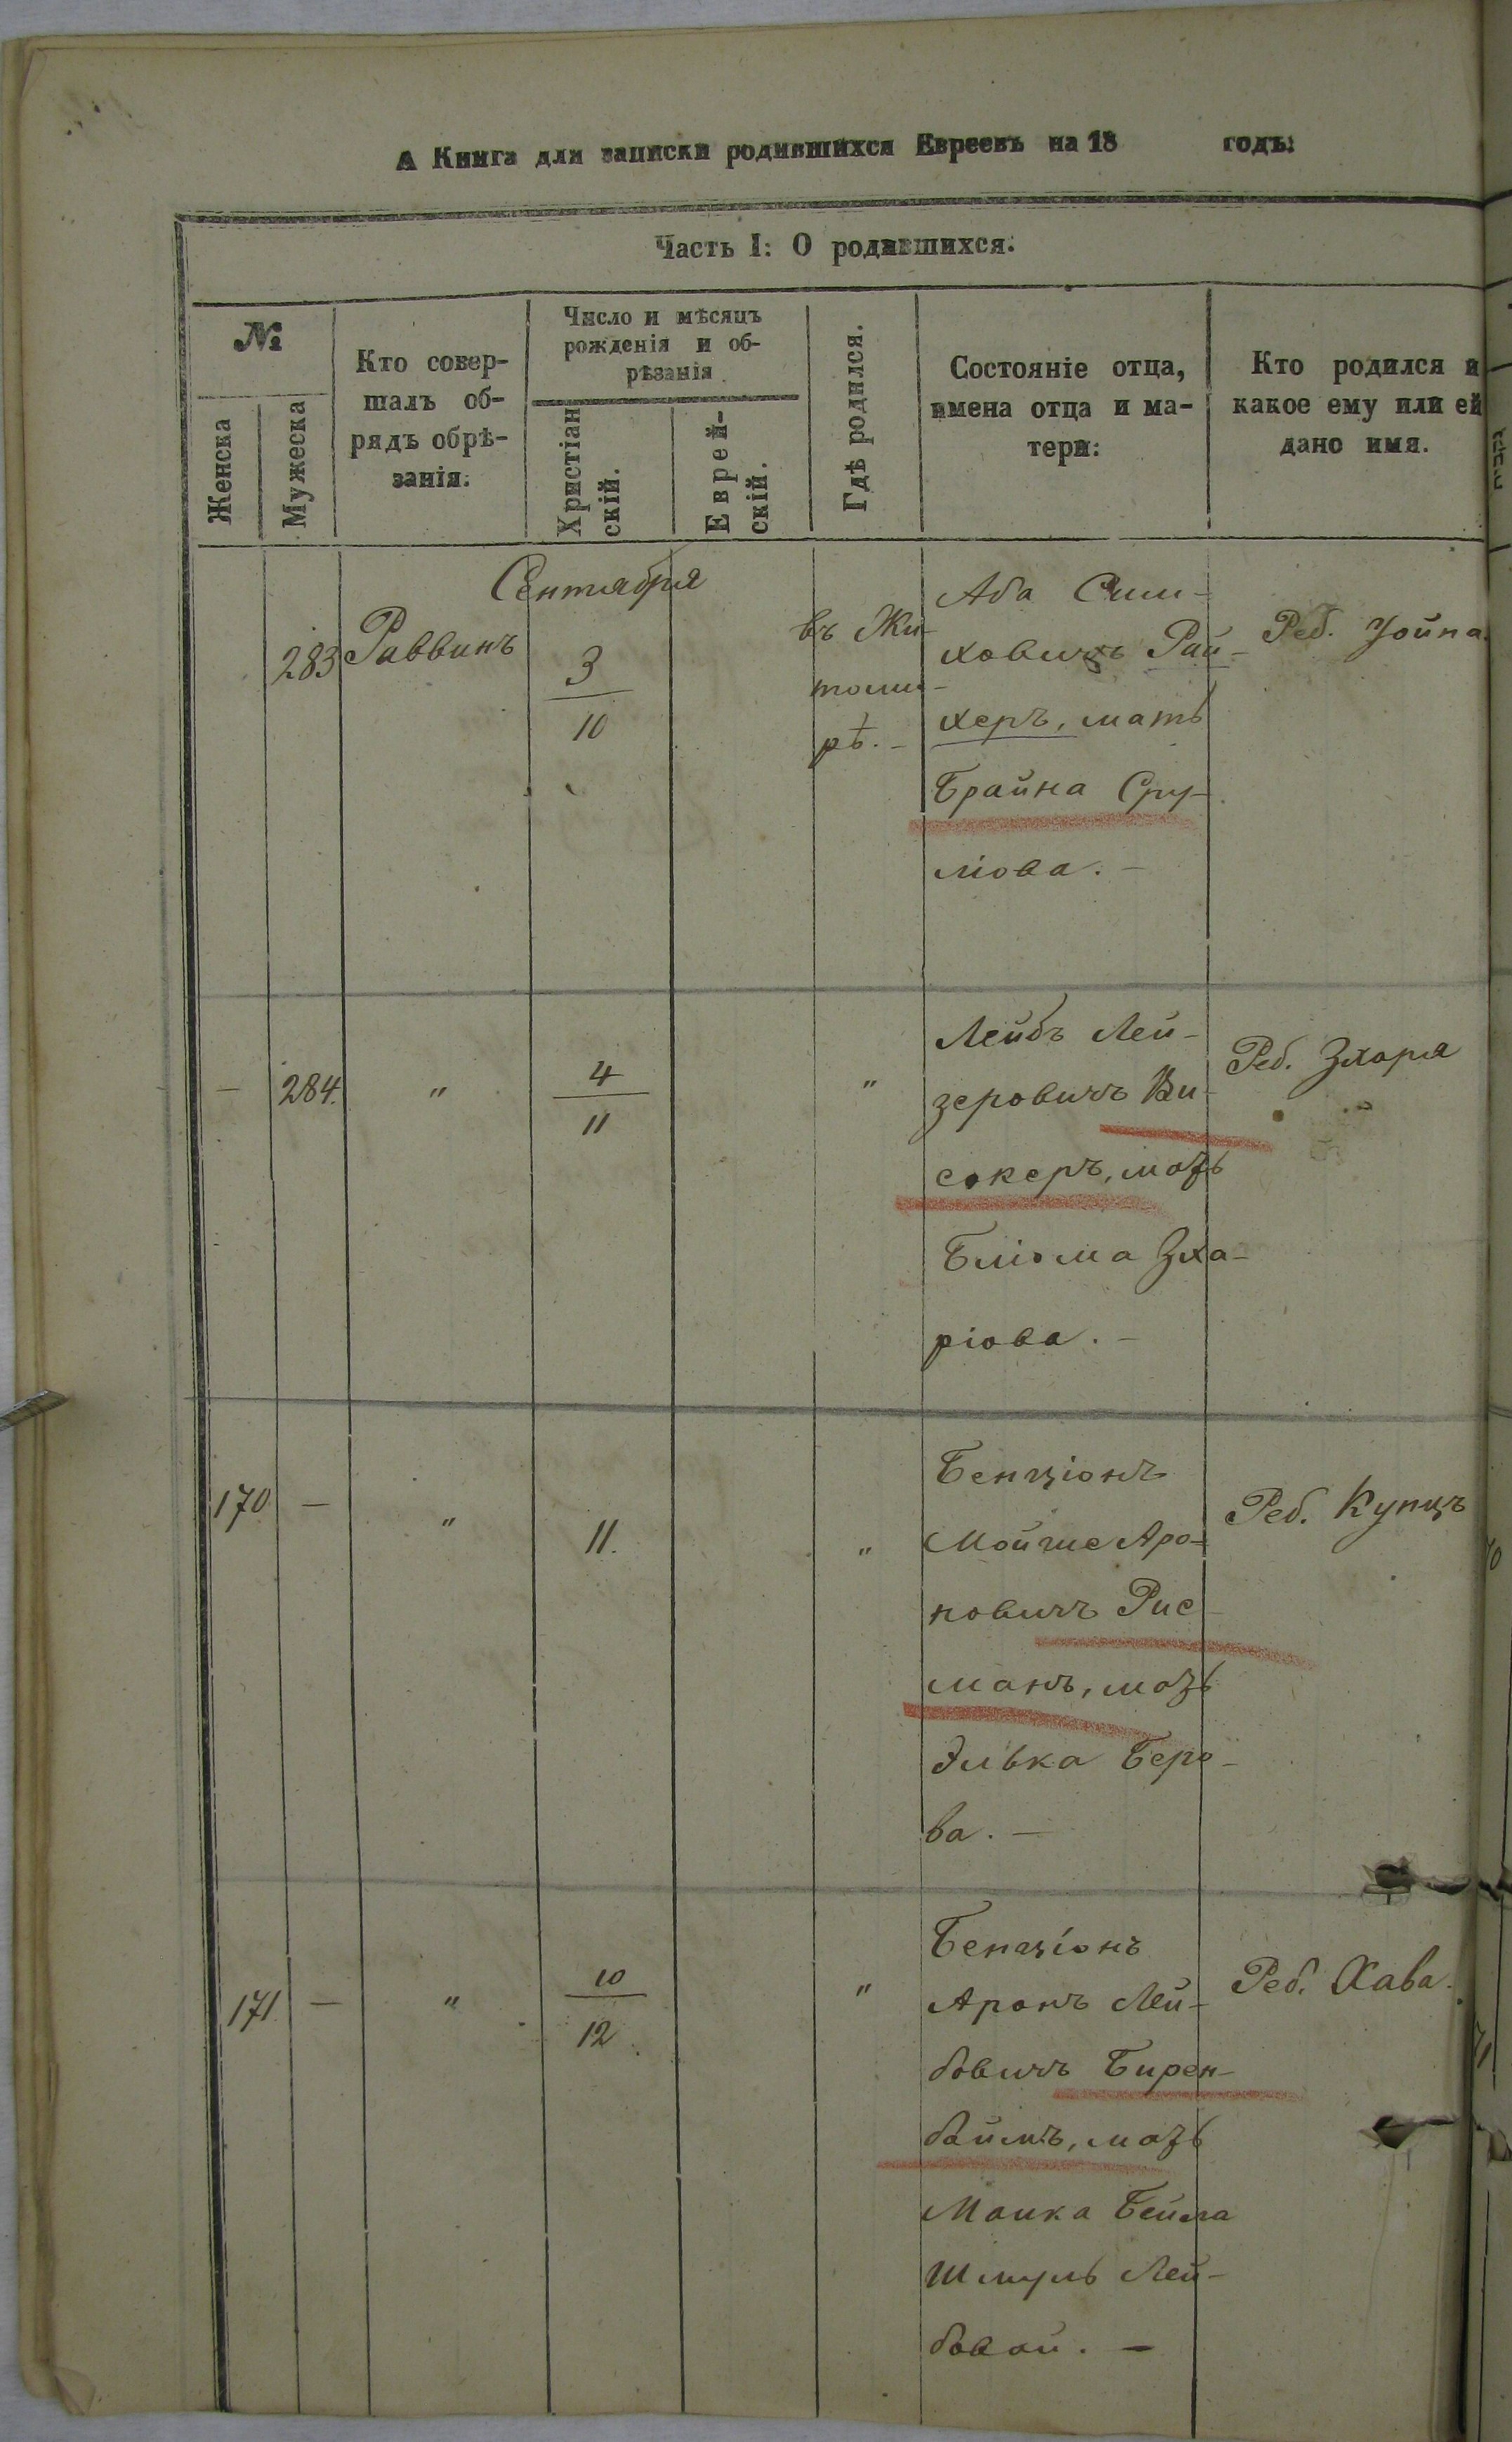 А Книга для записки родившихся Евреевъ на 18 годъ:
Часть I: О родившихся.
№
Женска
Мужеска
Кто совер-
шалъ об-
рядъ обрѣ-
занія:
Число и мѣсяцъ
рожденія и об-
рѣзанія
Христіан
скій.
Еврей-
скій.
Гдѣ родился.
Состояніе отца,
имена отца и ма-
тери:
Кто родился и
какое ему или ей
дано имя.
Сентября
283 Раввинъ
3
10
въ Жи-
томи-
рѣ. -
Аба Сим-
ховичъ Рай-
херъ, мать
Брайна Сру-
лiова. -
Реб. Уойна.
- 284. "
4
11
"
Лейбъ Лей-
зеровичъ Ви-
сокеръ, мать
Блiома Зха-
рiова. -
Реб. Зхаря
170 - "
11.
"
Бенціонъ
Мойше Аро-
новичъ Рис-
манъ, мать
Элька Беро-
ва. -
Реб. Купцъ
171 - "
10
12.
"
Бенціонъ
Аронъ Лей-
бовичъ Бирен-
баймъ, мать
Манка Бейла
Шмуль Лей-
бовой. -
Реб. Хава.